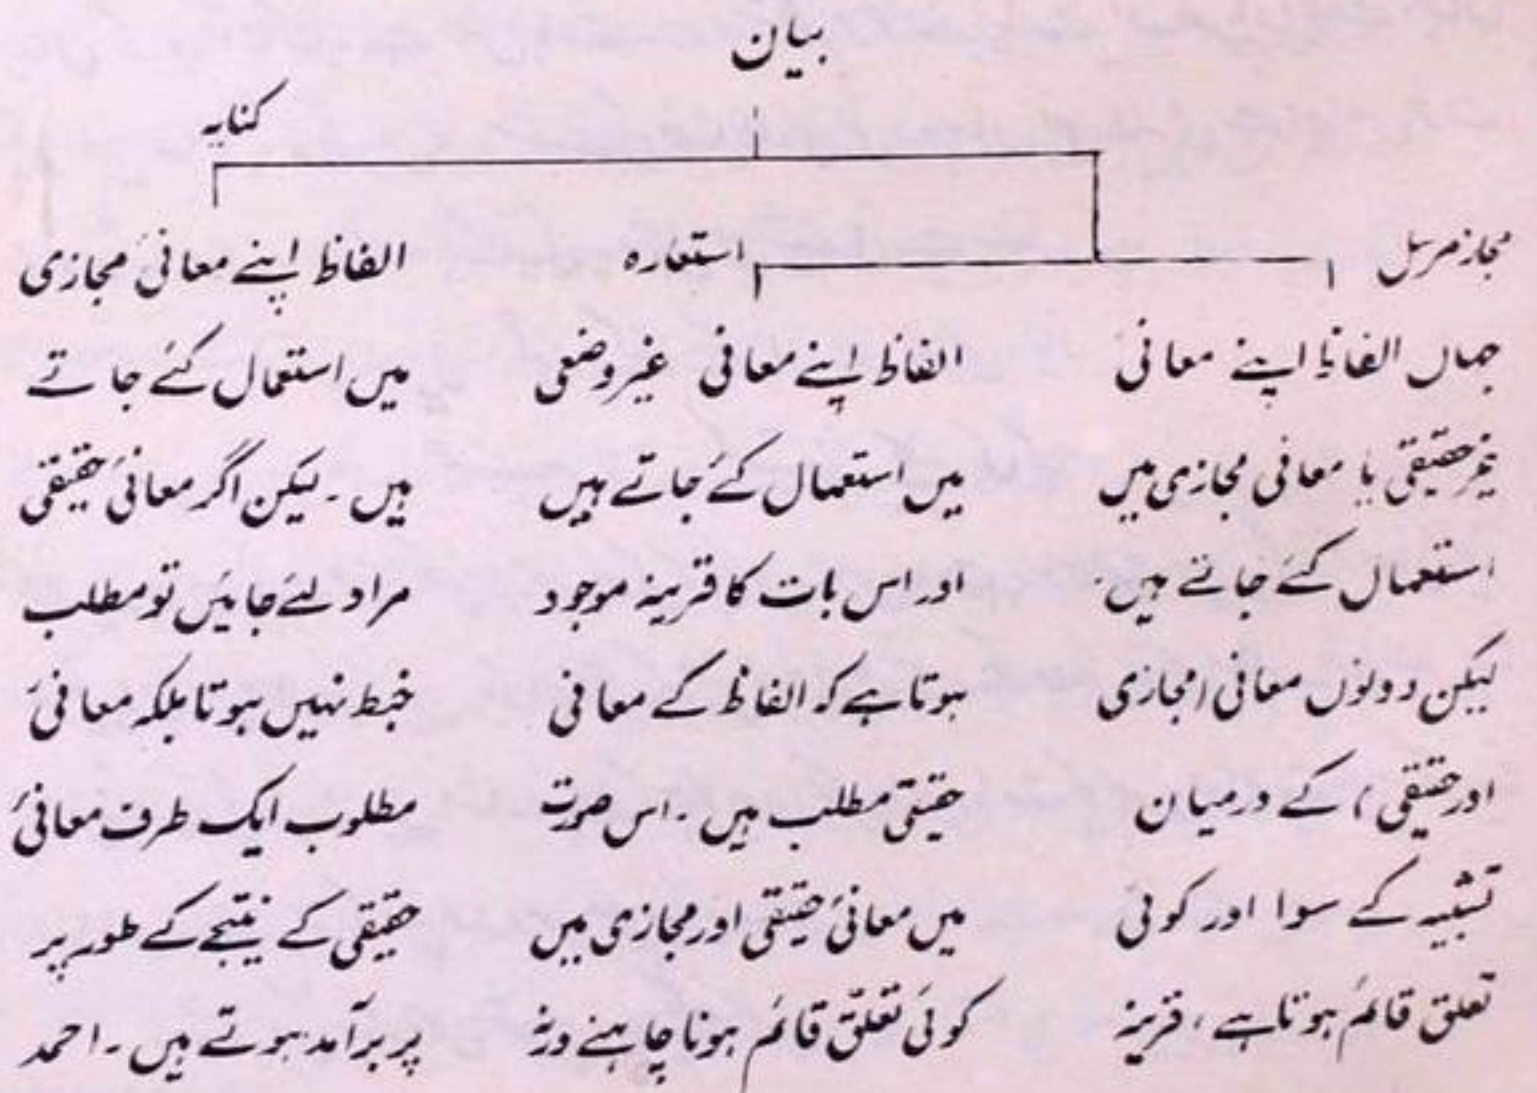 بیان
کنایہ
مجاز مرسل
جہاں الفاظ اپنے معانی
غیر حقیقی یا معانی مجازی میں
استعمال کئے جاتے ہیں.
لیکن دونوں معانی (مجازی
اور حقیقی) کے درمیان
تشبیہ کے سوا اور کوئی
تعلق قائم ہوتا ہے، قرینہ
استعارہ
الفاظ اپنے معانی غیر وضعی
میں استعمال کئے جاتے ہیں
اور اس بات کا قرینہ موجود
ہوتا ہے کہ الفاظ کے معانی
حقیقی مطلب ہیں۔ اس صورت
میں معانیٔ حقیقی اور مجازی میں
کوئی تعلق قائم ہونا چاہئے ورنہ
الفاظ اپنے معانیٔ مجازی
میں استعمال کئے جاتے
ہیں۔ لیکن اگر معانیٔ حقیقی
مراد لئے جائیں تو مطلب
خبط نہیں ہوتا بلکہ معانیٔ
مطلوب ایک طرف معانیٔ
حقیقی کے نتیجے کے طور پر
پر برآمد ہوتے ہیں۔ احمد